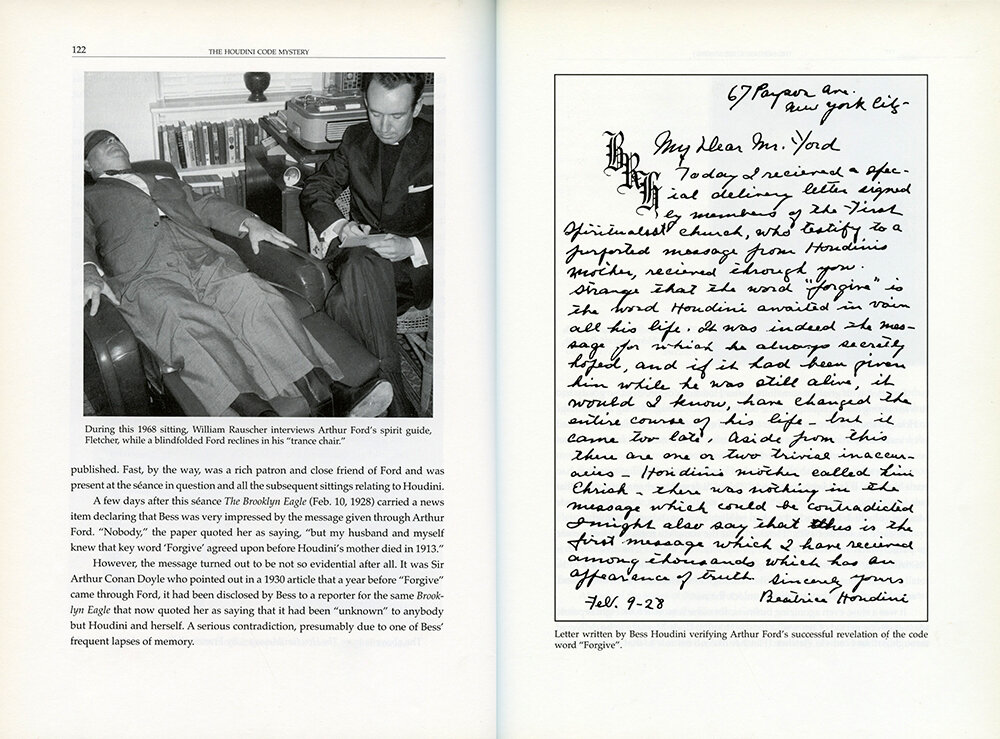 122
THE HOUDINI CODE MYSTERY
During this 1968 sitting, William Rauscher interviews Arthur Ford's spirit guide,
Fletcher, while a blindfolded Ford reclines in his “trance chair.”
published. Fast, by the way, was a rich patron and close friend of Ford and was
present at the séance in question and all the subsequent sittings relating to Houdini.
A few days after this séance The Brooklyn Eagle (Feb. 10, 1928) carried a news
item declaring that Bess was very impressed by the message given through Arthur
Ford. “Nobody,” the paper quoted her as saying, “but my husband and myself
knew that key word ‘Forgive’ agreed upon before Houdini's mother died in 1913.”
However, the message turned out to be not so evidential after all. It was Sir
Arthur Conan Doyle who pointed out in a 1930 article that a year before “Forgive”
came through Ford, it had been disclosed by Bess to a reporter for the same Brook-
lyn Eagle that now quoted her as saying that it had been “unknown” to anybody
but Houdini and herself. A serious contradiction, presumably due to one of Bess'
frequent lapses of memory.
67 Payson Ave.
New York City-
BRH
My Dear Mr. Ford
Today I recieved a spec-
ial delivery letter signed
by members of the First
Spiritualist church, who testify to a
purported message from Houdinis
mother, recieved through you.
Strange that the word "forgive" is
the word Houdini awaited in vain
all his life. It was indeed the mes-
sage for which he always secretly
hoped, and if it had been given
him while he was still alive, it
would I know, have changed the
entire course of his life - but it
came too late. Aside from this
there are one or two trivial inaccur-
acies - Houdinis mother called him
Ehrich - there was nothing in the
message which could be contradicted
I might also say that this is the
first message which I have recieved
among thousands which has an
appearance of truth. Sincerely yours
Feb. 9-28 Beatrice Houdini
Letter written by Bess Houdini verifying Arthur Ford's successful revelation of the code
word “Forgive”.